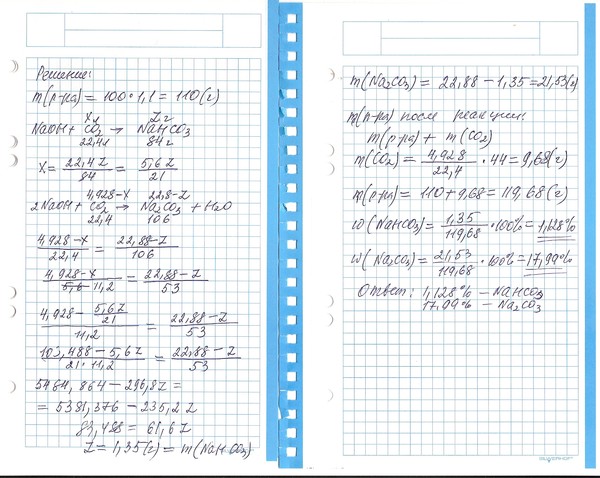 Решение:
m(р-ра) = 100·1,1 = 110(г)
Xл Zг
NaOH + CO2 → NaHCO3
22,4л 84г
X = 22,4Z/84 = 5,6Z/21
4,928-X 22,88-Z
2NaOH + CO2 → Na2CO3 + H2O
22,4 106
4,928-X/22,4 = 22,88-Z/106
4,928-X/5,6·11,2 = 22,88-Z/53
4,928 - 5,6Z/21/11,2 = 22,88-Z/53
103,488-5,6Z/21·11,2 = 22,88-Z/53
5484,864 - 296,8Z =
= 5381,376 - 235,2Z
83,488 = 61,6Z
Z = 1,35(г) = m(NaHCO3)
m(Na2CO3) = 22,88 - 1,35 = 21,53(г)
m(р-ра) после реакции:
m(р-ра) + m(CO2)
m(CO2) = 4,928/22,4 · 44 = 9,68(г)
m(р-ра) = 110 + 9,68 = 119,68(г)
w(NaHCO3) = 1,35/119,68 · 100% = 1,128%
w(Na2CO3) = 21,53/119,68 · 100% = 17,99%
Ответ: 1,128% - NaHCO3
17,99% - Na2CO3